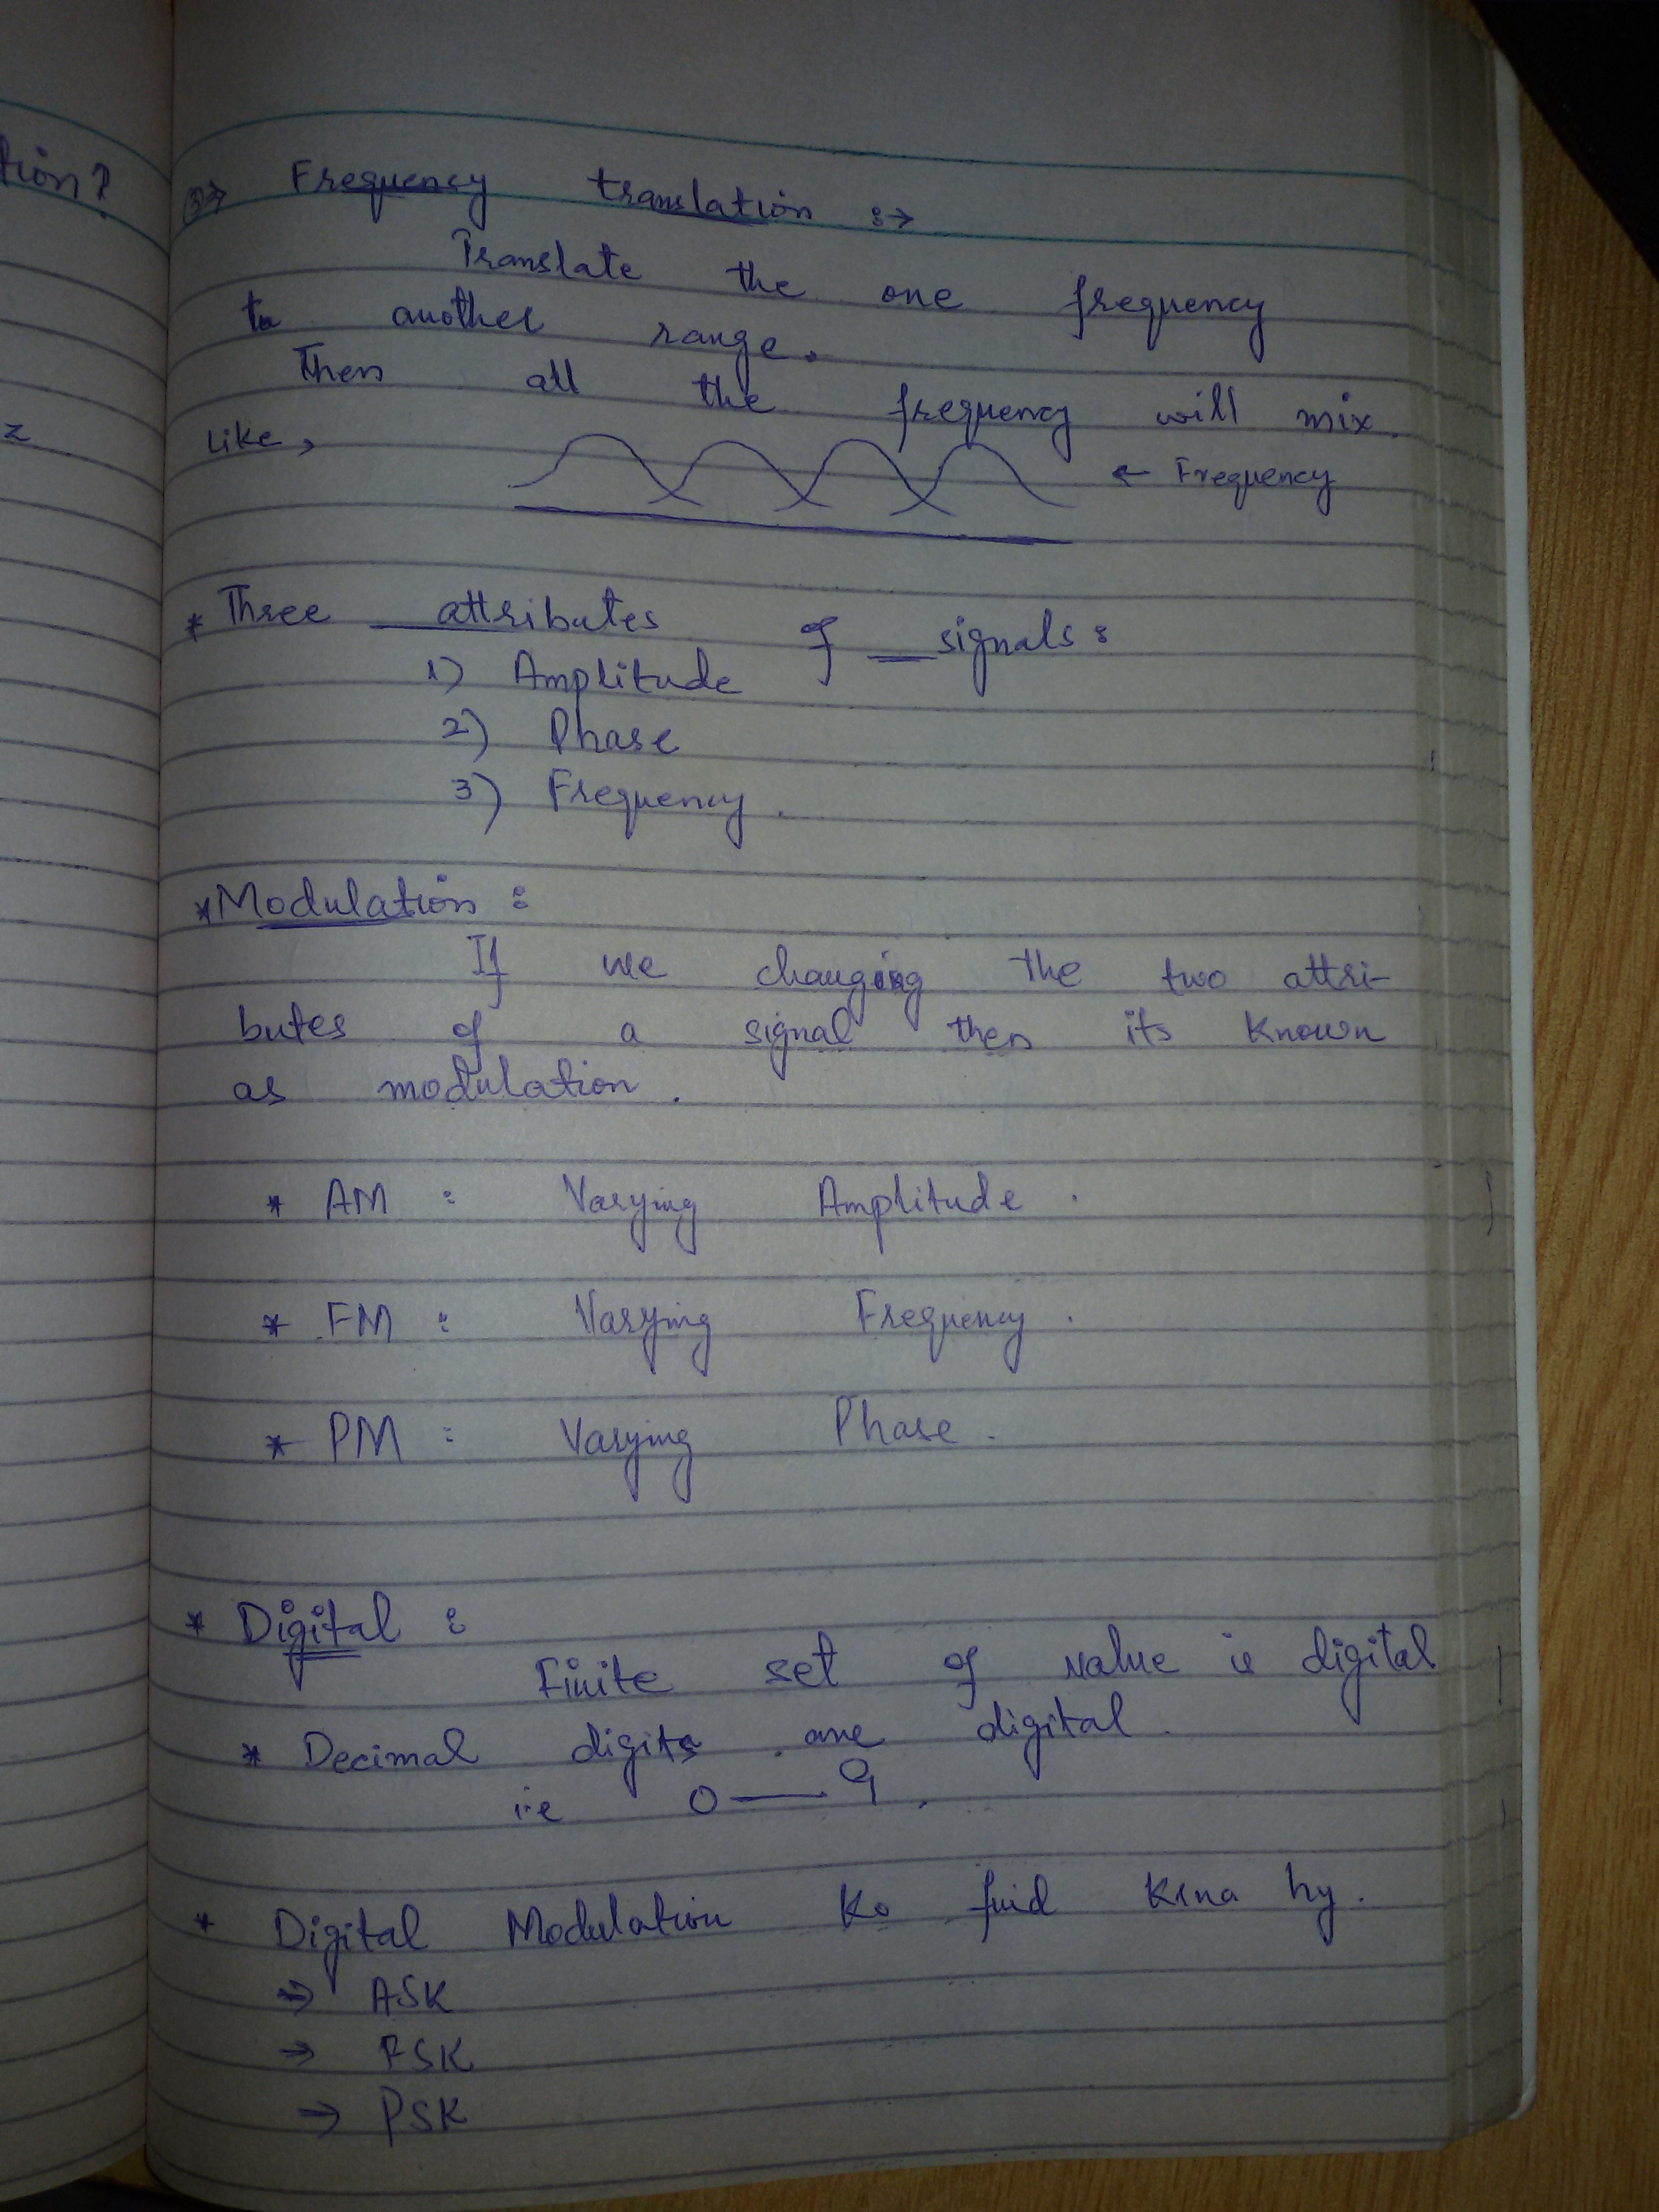 tion?
z
3→ Frequency translation :→
Translate the one frequency
to another range.
Then all the frequency will mix.
Like, ← Frequency
* Three attributes of signals:
1) Amplitude
2) Phase
3) Frequency.
* Modulation :
If we changing the two attri-
butes of a signal then its known
as modulation.
* AM : Varying Amplitude.
* FM : Varying Frequency.
* PM : Varying Phase.
* Digital :
Finite set of value is digital
* Decimal digits are digital.
i.e 0 — 9.
* Digital Modulation Ko find Krna hy.
→ ASK
→ FSK
→ PSK